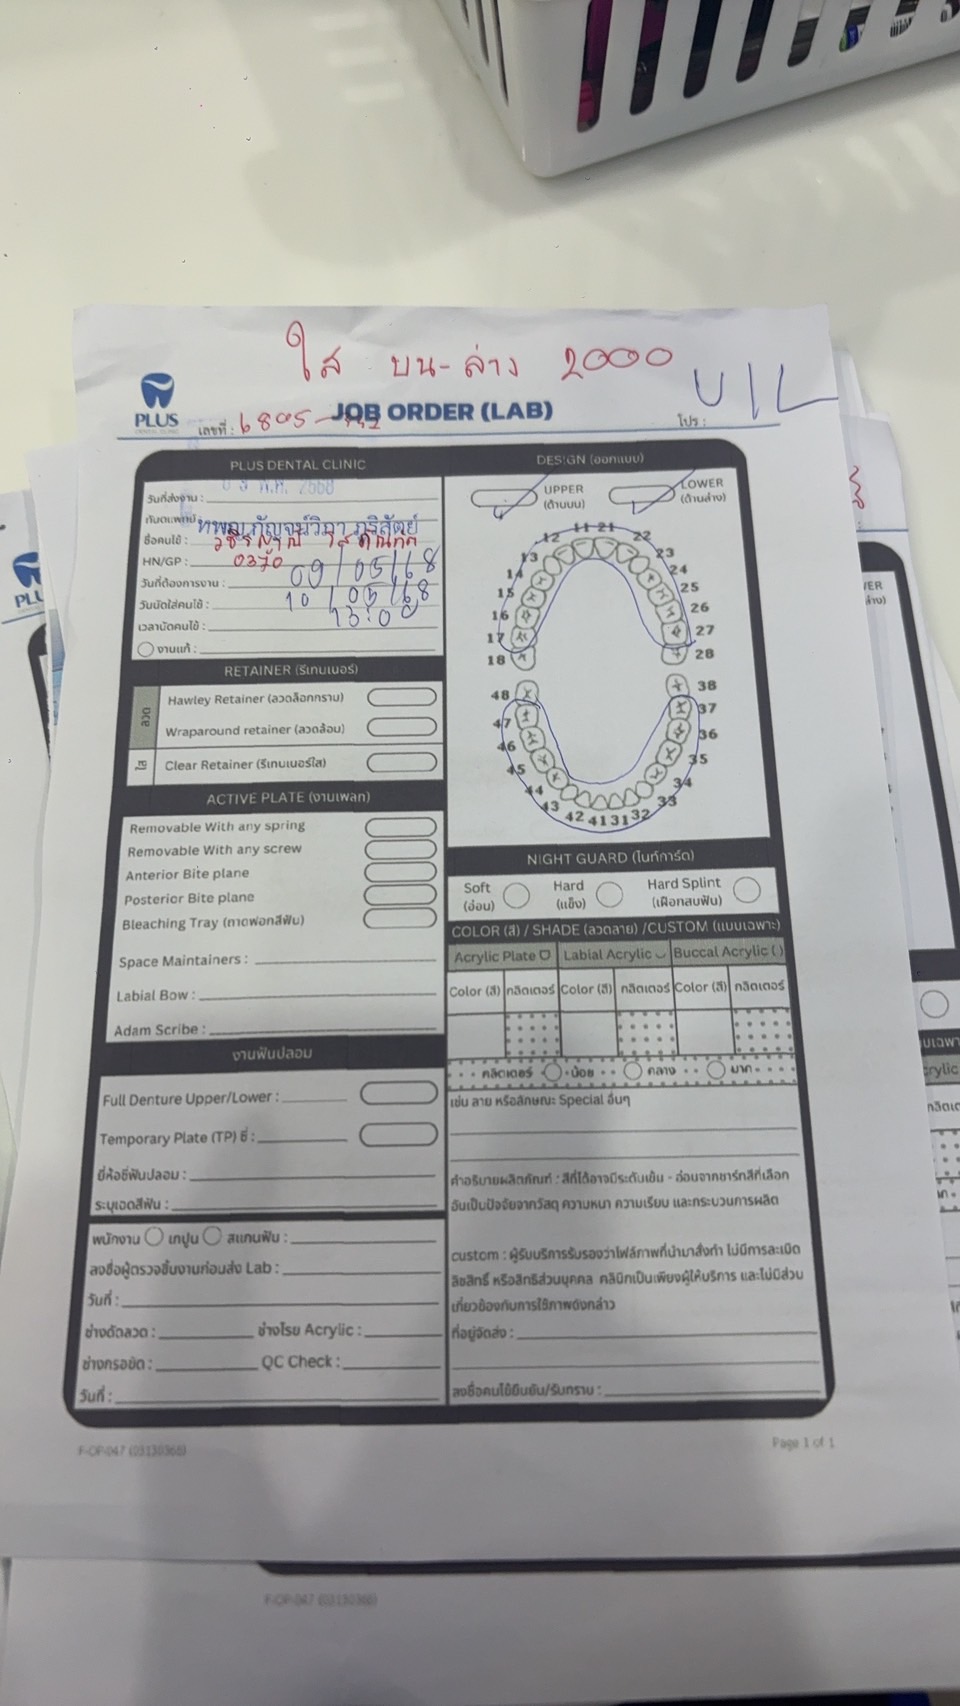 ใส บน-ล่าง 2000
U/L
PLUS
DENTAL CLINIC
เลขที่ : 6805-
JOB ORDER (LAB)
โปร :
PLUS DENTAL CLINIC
วันที่ส่งงาน : 0 9 พ.ค. 2568
ทันตแพทย์ : ทพญ.กัญจน์วิภา ภูริสัตย์
ชื่อคนไข้ :
HN/GP : 0370
วันที่ต้องการงาน : 09/05/68
วันนัดใส่คนไข้ : 10/05/68
เวลานัดคนไข้ : 13:00
งานแก้ :
RETAINER (รีเทนเนอร์)
ลวด
Hawley Retainer (ลวดล็อกกราม)
Wraparound retainer (ลวดล้อม)
ใส
Clear Retainer (รีเทนเนอร์ใส)
ACTIVE PLATE (งานเพลท)
Removable With any spring
Removable With any screw
Anterior Bite plane
Posterior Bite plane
Bleaching Tray (ถาดฟอกสีฟัน)
Space Maintainers :
Labial Bow :
Adam Scribe :
งานฟันปลอม
Full Denture Upper/Lower :
Temporary Plate (TP) ซี่ :
ยี่ห้อซี่ฟันปลอม :
ระบุเฉดสีฟัน :
พนักงาน เทปูน สแกนฟัน :
ลงชื่อผู้ตรวจชิ้นงานก่อนส่ง Lab :
วันที่ :
ช่างดัดลวด : ช่างโรย Acrylic :
ช่างกรอขัด : QC Check :
วันที่ :
DESIGN (ออกแบบ)
UPPER
(ด้านบน)
LOWER
(ด้านล่าง)
11 21
12 22
13 23
14 24
15 25
16 26
17 27
18 28
48 38
47 37
46 36
45 35
44 34
43 33
42 41 31 32
NIGHT GUARD (ไนท์การ์ด)
Soft
(อ่อน)
Hard
(แข็ง)
Hard Splint
(เฝือกสบฟัน)
COLOR (สี) / SHADE (ลวดลาย) /CUSTOM (แบบเฉพาะ)
Acrylic Plate Labial Acrylic Buccal Acrylic ( )
Color (สี) กลิตเตอร์ Color (สี) กลิตเตอร์ Color (สี) กลิตเตอร์
กลิตเตอร์ น้อย กลาง มาก
เช่น ลาย หรือลักษณะ Special อื่นๆ
คำอธิบายผลิตภัณฑ์ : สีที่ได้อาจมีระดับเข้ม - อ่อนจากชาร์ทสีที่เลือก
อันเป็นปัจจัยจากวัสดุ ความหนา ความเรียบ และกระบวนการผลิต
custom : ผู้รับบริการรับรองว่าไฟล์ภาพที่นำมาสั่งทำ ไม่มีการละเมิด
ลิขสิทธิ์ หรือสิทธิส่วนบุคคล คลินิกเป็นเพียงผู้ให้บริการ และไม่มีส่วน
เกี่ยวข้องกับการใช้ภาพดังกล่าว
ที่อยู่จัดส่ง :
ลงชื่อคนไข้ยืนยัน/รับทราบ :
F-OP-047 (03130368)
Page 1 of 1
F-OP-047 (03130368)